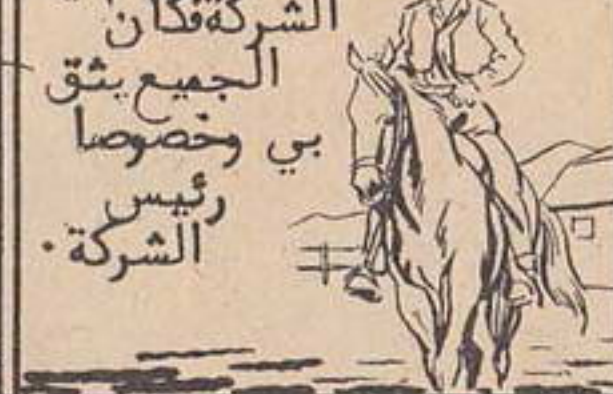 الشركة فكان
الجميع يثق
بي وخصوصا
رئيس
الشركة .